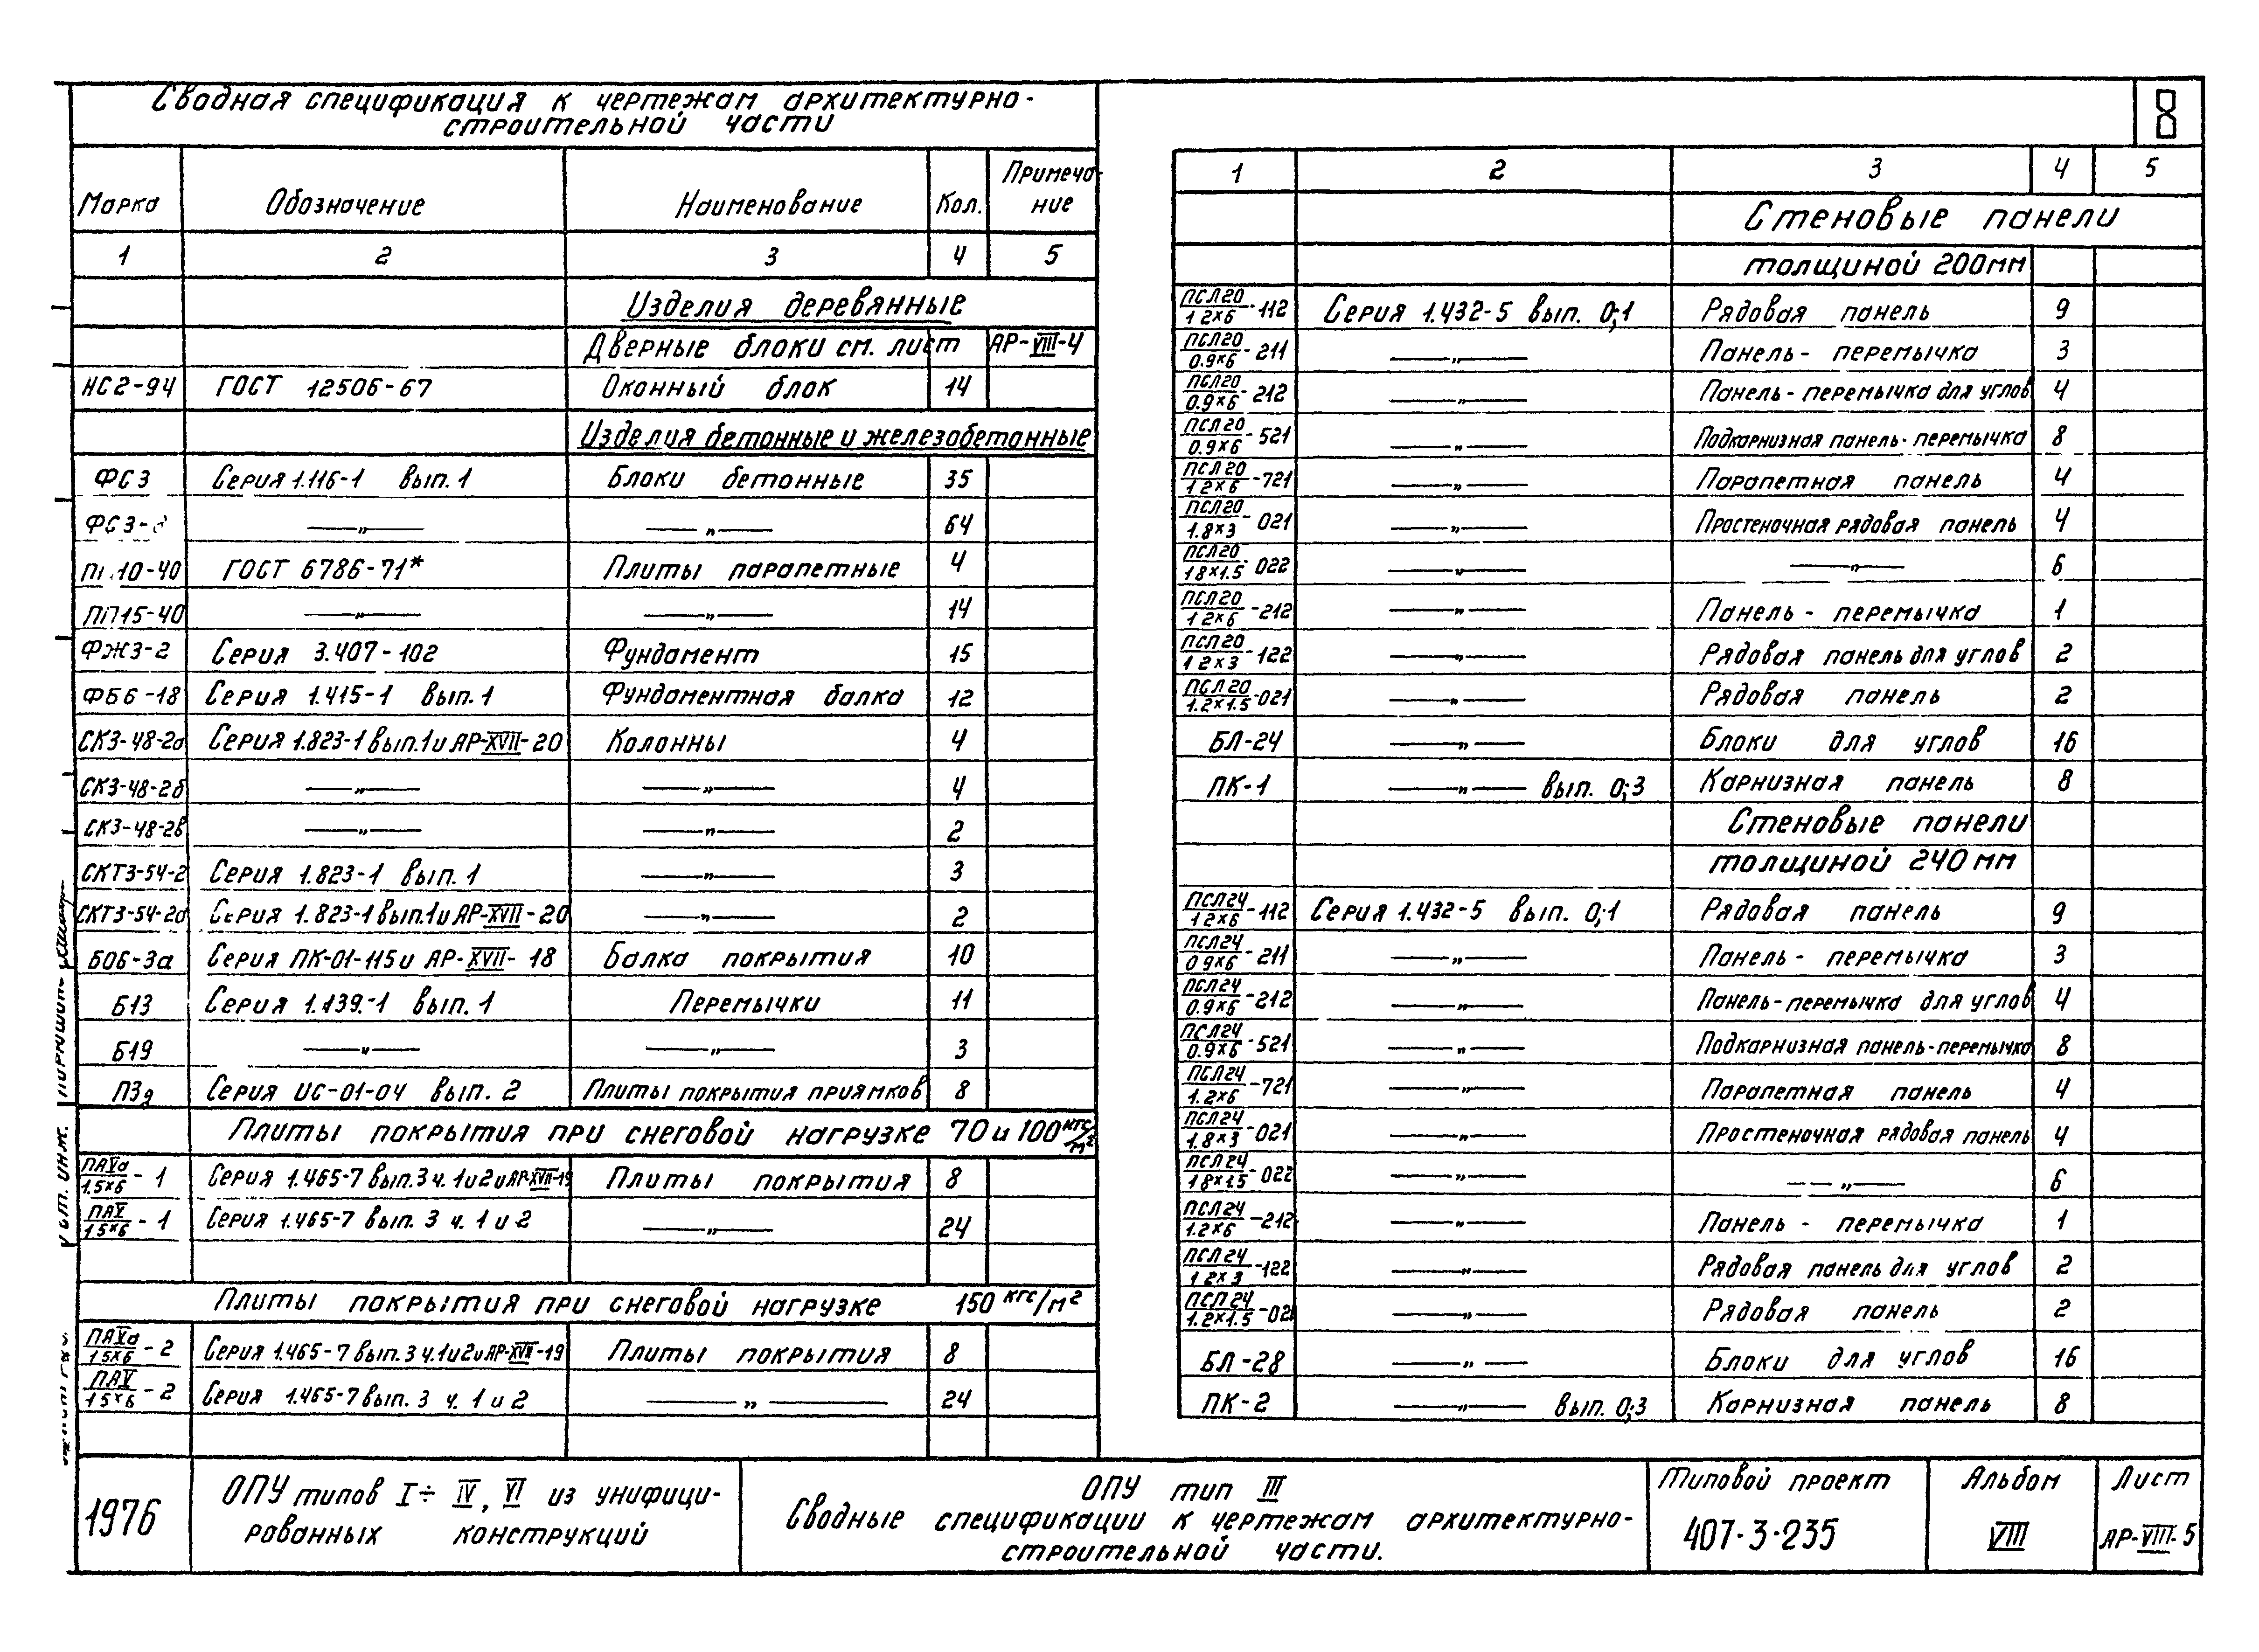 Сводная спецификация к чертежам архитектурно-
строительной части
8
Марка Обозначение Наименование Кол. Примеча-
ние
1 2 3 4 5
Изделия деревянные
Дверные блоки см. лист АР-VIII-4
НС2-94 ГОСТ 12506-67 Оконный блок 14
Изделия бетонные и железобетонные
ФС3 Серия 1.116-1 вып. 1 Блоки бетонные 35
—„— —„— 64
ГОСТ 6786-71* Плиты парапетные 4
ПП15-40 —„— —„— 14
ФЖ3-2 Серия 3.407-102 Фундамент 15
ФБ6-18 Серия 1.415-1 вып. 1 Фундаментная балка 12
СК3-48-2а Серия 1.823-1 вып.1 и АР-XVII-20 Колонны 4
СК3-48-2б —„— —„— 4
СК3-48-2в —„— —„— 2
СКТ3-54-2 Серия 1.823-1 вып. 1 —„— 3
СКТ3-54-2а Серия 1.823-1 вып.1 и АР-XVII-20 —„— 2
БО6-3а Серия ПК-01-115 и АР-XVII-18 Балка покрытия 10
Б13 Серия 1.139.-1 вып. 1 Перемычки 11
Б19 —„— —„— 3
П3д Серия ИС-01-04 вып. 2 Плиты покрытия приямков 8
Плиты покрытия при снеговой нагрузке 70 и 100 кгс/м²
ПАVа/1.5×6 - 1 Серия 1.465-7 вып.3 ч. 1 и 2 и АР-XVII-19 Плиты покрытия 8
ПАV/1.5×6 - 1 Серия 1.465-7 вып. 3 ч. 1 и 2 —„— 24
Плиты покрытия при снеговой нагрузке 150 кгс/м²
ПАVа/1.5×6 - 2 Серия 1.465-7 вып.3 ч.1 и 2 и АР-XVII-19 Плиты покрытия 8
ПАV/1.5×6 - 2 Серия 1.465-7 вып. 3 ч. 1 и 2 —„— 24
1 2 3 4 5
Стеновые панели
толщиной 200мм
ПСЛ20/1.2×6 -112 Серия 1.432-5 вып. 0;1 Рядовая панель 9
ПСЛ20/0.9×6 -211 —„— Панель- перемычка 3
ПСЛ20/0.9×6 -212 —„— Панель-перемычка для углов 4
ПСЛ20/0.9×6 -521 —„— Подкарнизная панель-перемычка 8
ПСЛ20/1.2×6 -721 —„— Парапетная панель 4
ПСЛ20/1.8×3 -021 —„— Простеночная рядовая панель 4
ПСЛ20/1.8×1.5 -022 —„— —„— 6
ПСЛ20/1.2×6 -212 —„— Панель - перемычка 1
ПСЛ20/1.2×3 -122 —„— Рядовая панель для углов 2
ПСЛ20/1.2×1.5 -021 —„— Рядовая панель 2
БЛ-24 —„— Блоки для углов 16
ПК-1 —„— вып. 0;3 Карнизная панель 8
Стеновые панели
толщиной 240 мм
ПСЛ24/1.2×6 -112 Серия 1.432-5 вып. 0;1 Рядовая панель 9
ПСЛ24/0.9×6 -211 —„— Панель - перемычка 3
ПСЛ24/0.9×6 -212 —„— Панель-перемычка для углов 4
ПСЛ24/0.9×6 -521 —„— Подкарнизная панель-перемычка 8
ПСЛ24/1.2×6 -721 —„— Парапетная панель 4
ПСЛ24/1.8×3 -021 —„— Простеночная рядовая панель 4
ПСЛ24/1.8×1.5 -022 —„— —„— 6
ПСЛ24/1.2×6 -212 —„— Панель - перемычка 1
ПСЛ24/1.2×3 -122 —„— Рядовая панель для углов 2
ПСЛ24/1.2×1.5 -021 —„— Рядовая панель 2
БЛ-28 —„— Блоки для углов 16
ПК-2 —„— вып. 0;3 Карнизная панель 8
1976
ОПУ типов I÷IV, VI из унифици-
рованных конструкций
ОПУ тип III
Сводные спецификации к чертежам архитектурно-
строительной части.
Типовой проект
407-3-235
Альбом
VIII
Лист
АР-VIII-5